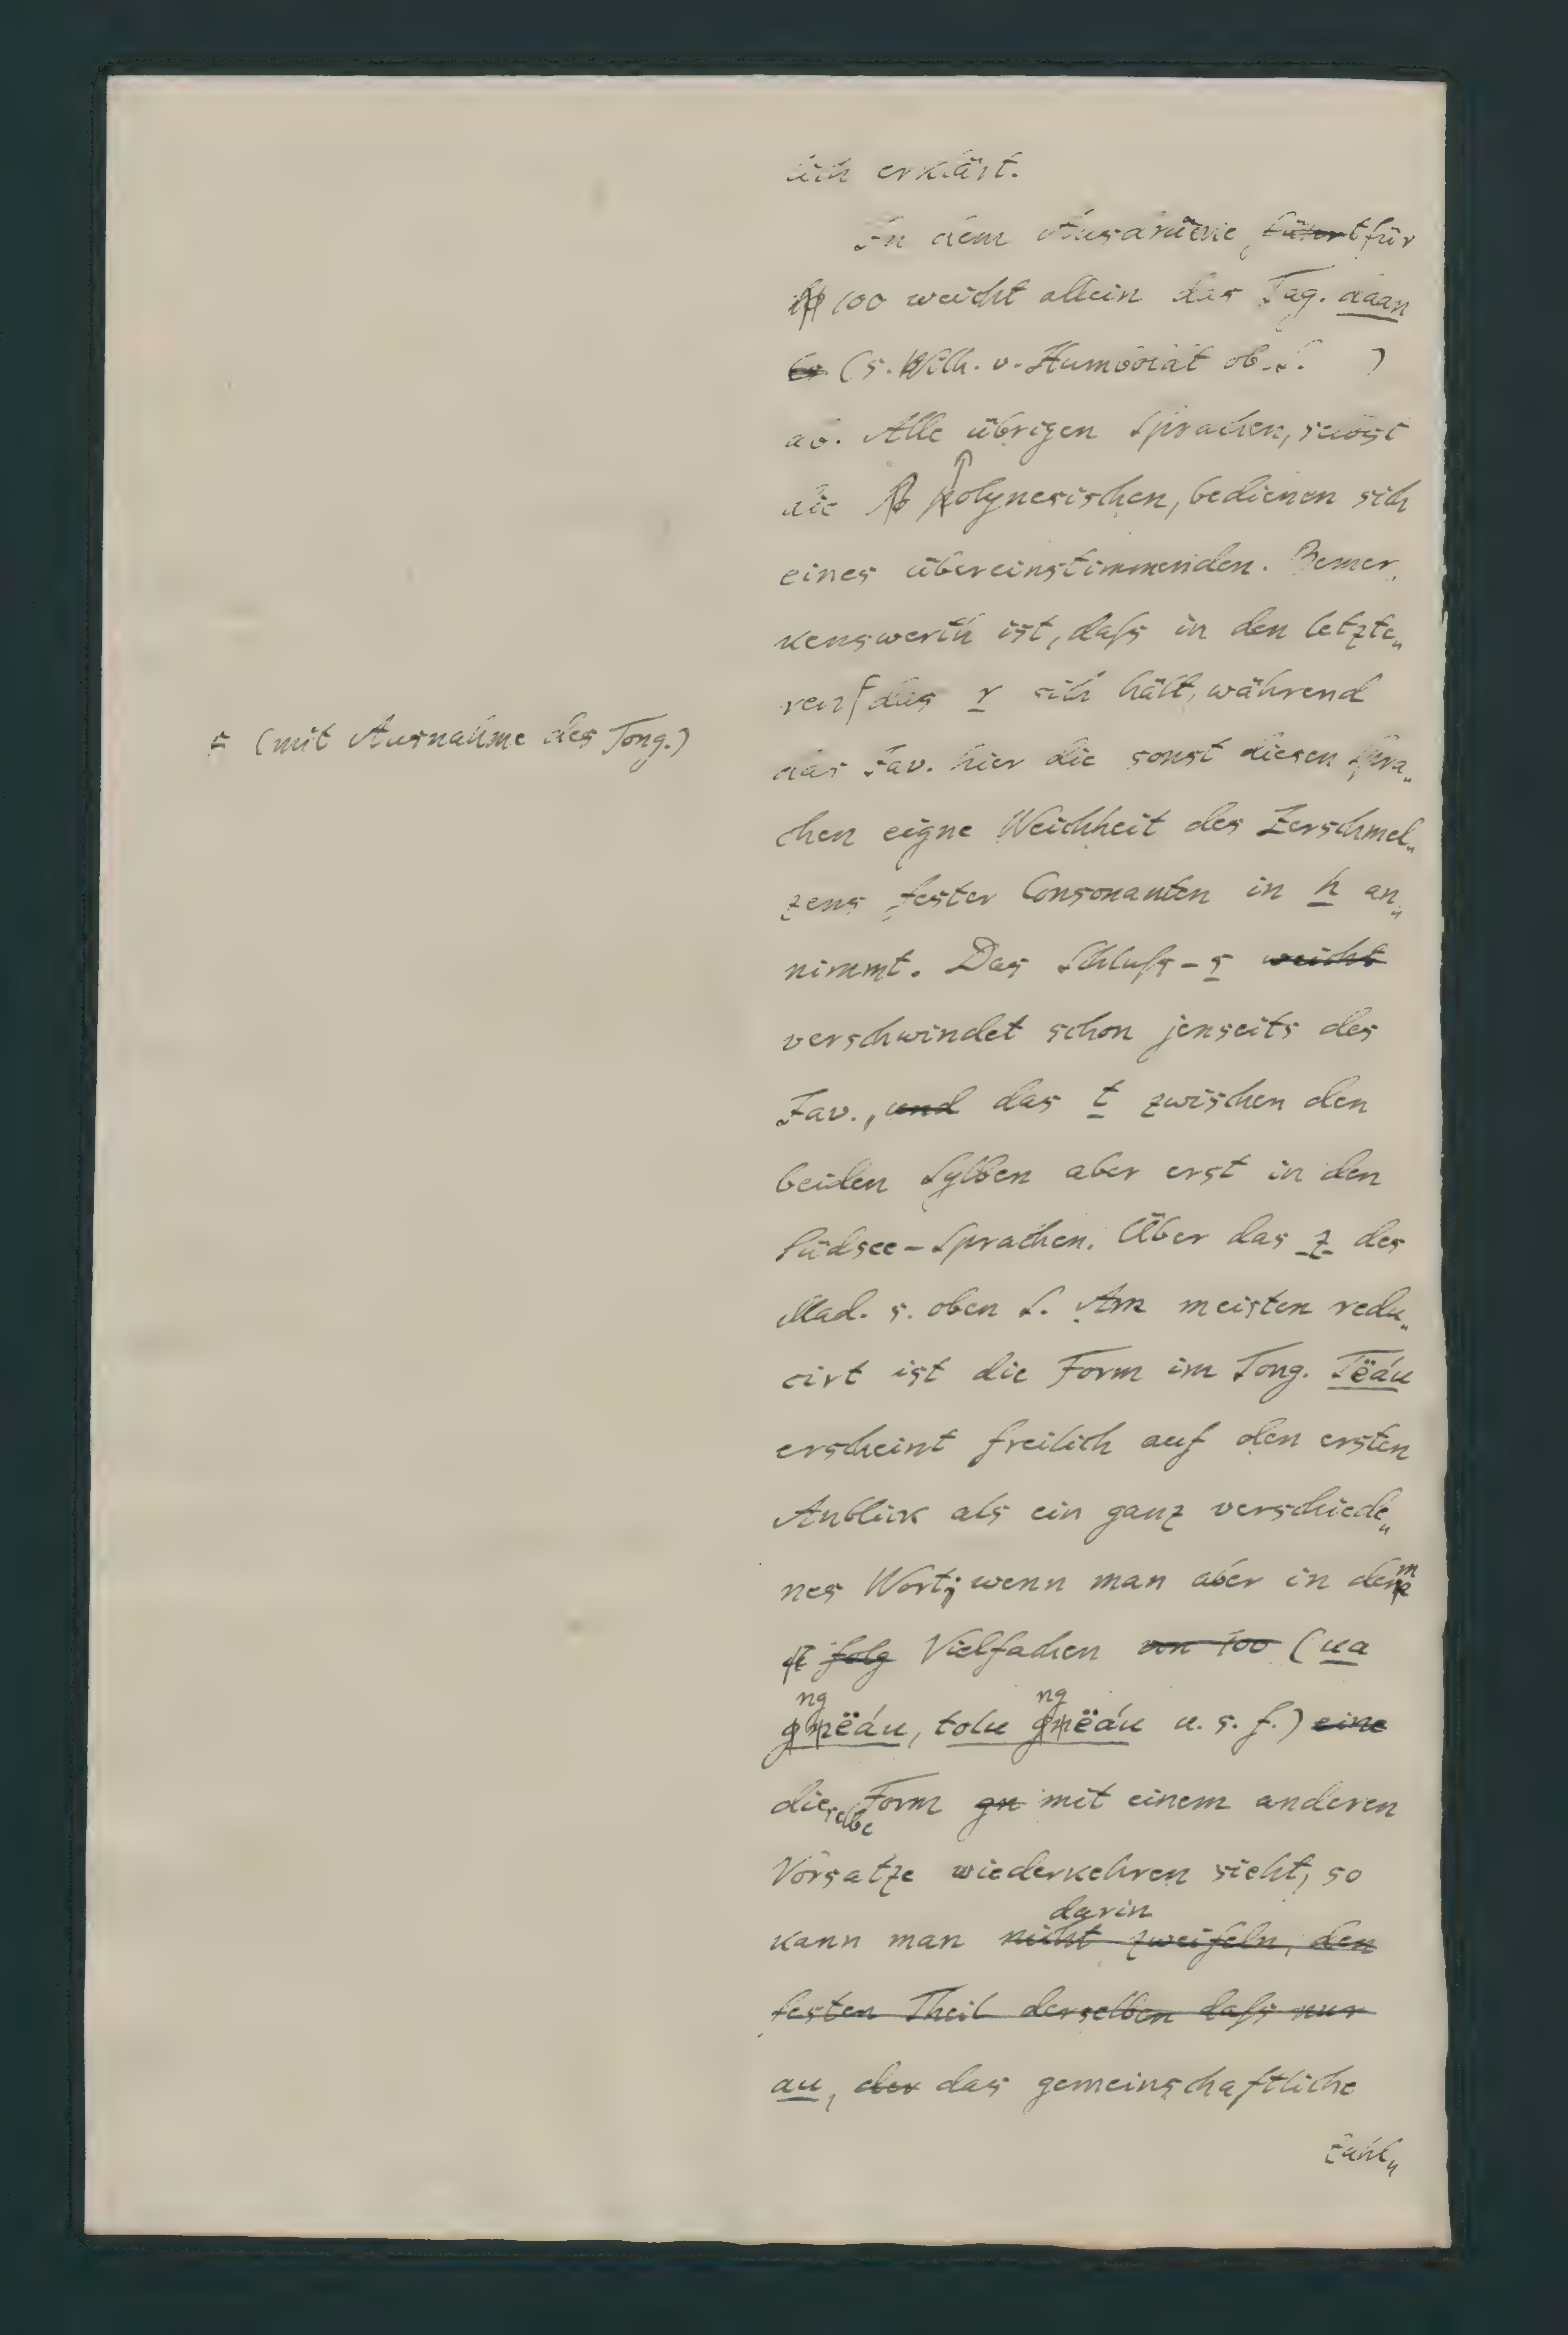 lich erklärt.
In dem Ausdrucke für
100 weicht allein das Tag. daan
(s. Wilh. v. Humboldt ob. S. )
ab. Alle übrigen Sprachen, selbst
die Polynesischen, bedienen sich
eines übereinstimmenden. Bemer„
kenswerth ist, daſs in den letzte„
ren das r sich hält, während
(mit Ausnahme des Tong.)
das Jav. hier die sonst diesen Spra„
chen eigne Weichheit des Zerschmel„
zens fester Consonanten in h an„
nimmt. Das Schluſs-s weicht
verschwindet schon jenseits des
Jav., und das t zwischen den
beiden Sylben aber erst in den
Südsee-Sprachen. Über das z des
Mad. s. oben S. Am meisten redu„
cirt ist die Form im Tong. Tëáu
erscheint freilich auf den ersten
Anblick als ein ganz verschiede„
nes Wort; wenn man aber in dem
folg Vielfachen von 100 (ua
ngëáu, tolu ngëáu u. s. f.) eine
dieselbe Form gn mit einem anderen
Vorsatze wiederkehren sieht, so
darin
kann man nicht zweifeln, den
festen Theil derselben daſs nur
au, der das gemeinschaftliche
Zahl„